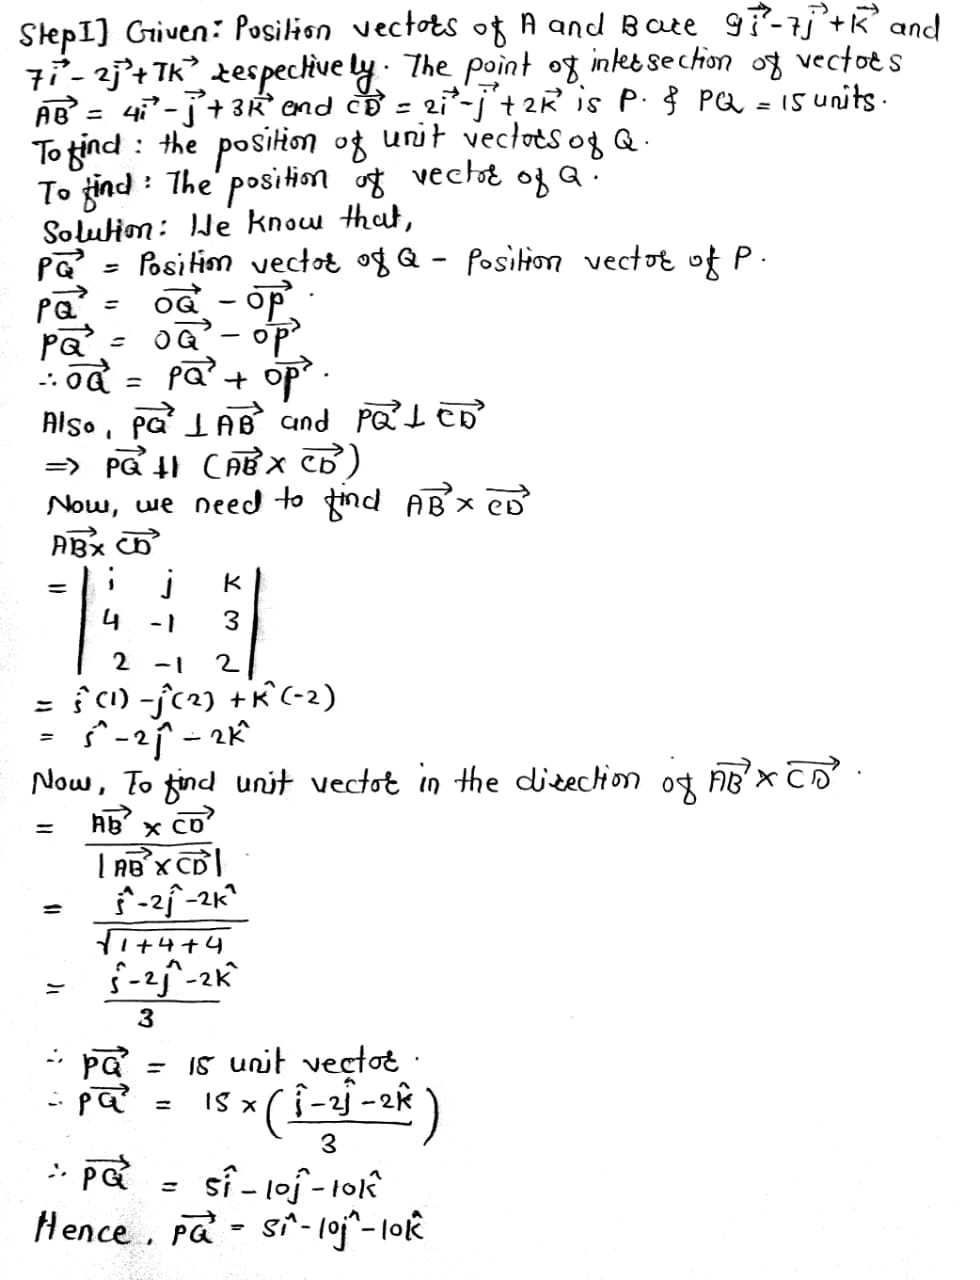 Step I] Given: Position vectors of A and B are 9i⃗ - 7j⃗ + k⃗ and
7i⃗ - 2j⃗ + 7k⃗ respectively. The point of intersection of vectors
A⃗B⃗ = 4i⃗ - j⃗ + 3k⃗ and C⃗D⃗ = 2i⃗ - j⃗ + 2k⃗ is P. & PQ = 15 units.
To find : the position of unit vectors of Q.
To find : The position of vector of Q.
Solution: We know that,
P⃗Q⃗ = Position vector of Q - Position vector of P.
P⃗Q⃗ = O⃗Q⃗ - O⃗P⃗.
P⃗Q⃗ = O⃗Q⃗ - O⃗P⃗
∴ O⃗Q⃗ = P⃗Q⃗ + O⃗P⃗.
Also, P⃗Q⃗ ⊥ A⃗B⃗ and P⃗Q⃗ ⊥ C⃗D⃗
=> P⃗Q⃗ || (A⃗B⃗ × C⃗D⃗)
Now, we need to find A⃗B⃗ × C⃗D⃗
A⃗B⃗ × C⃗D⃗
= | i j k |
| 4 -1 3 |
| 2 -1 2 |
= î(1) - ĵ(2) + k̂(-2)
= î - 2ĵ - 2k̂
Now, To find unit vector in the direction of A⃗B⃗ × C⃗D⃗.
= A⃗B⃗ × C⃗D⃗
|A⃗B⃗ × C⃗D⃗|
= î - 2ĵ - 2k̂
√1+4+4
= î - 2ĵ - 2k̂
3
∴ P⃗Q⃗ = 15 unit vector.
∴ P⃗Q⃗ = 15 × (î - 2ĵ - 2k̂)
3
∴ P⃗Q⃗ = 5î - 10ĵ - 10k̂
Hence, P⃗Q⃗ = 5î - 10ĵ - 10k̂